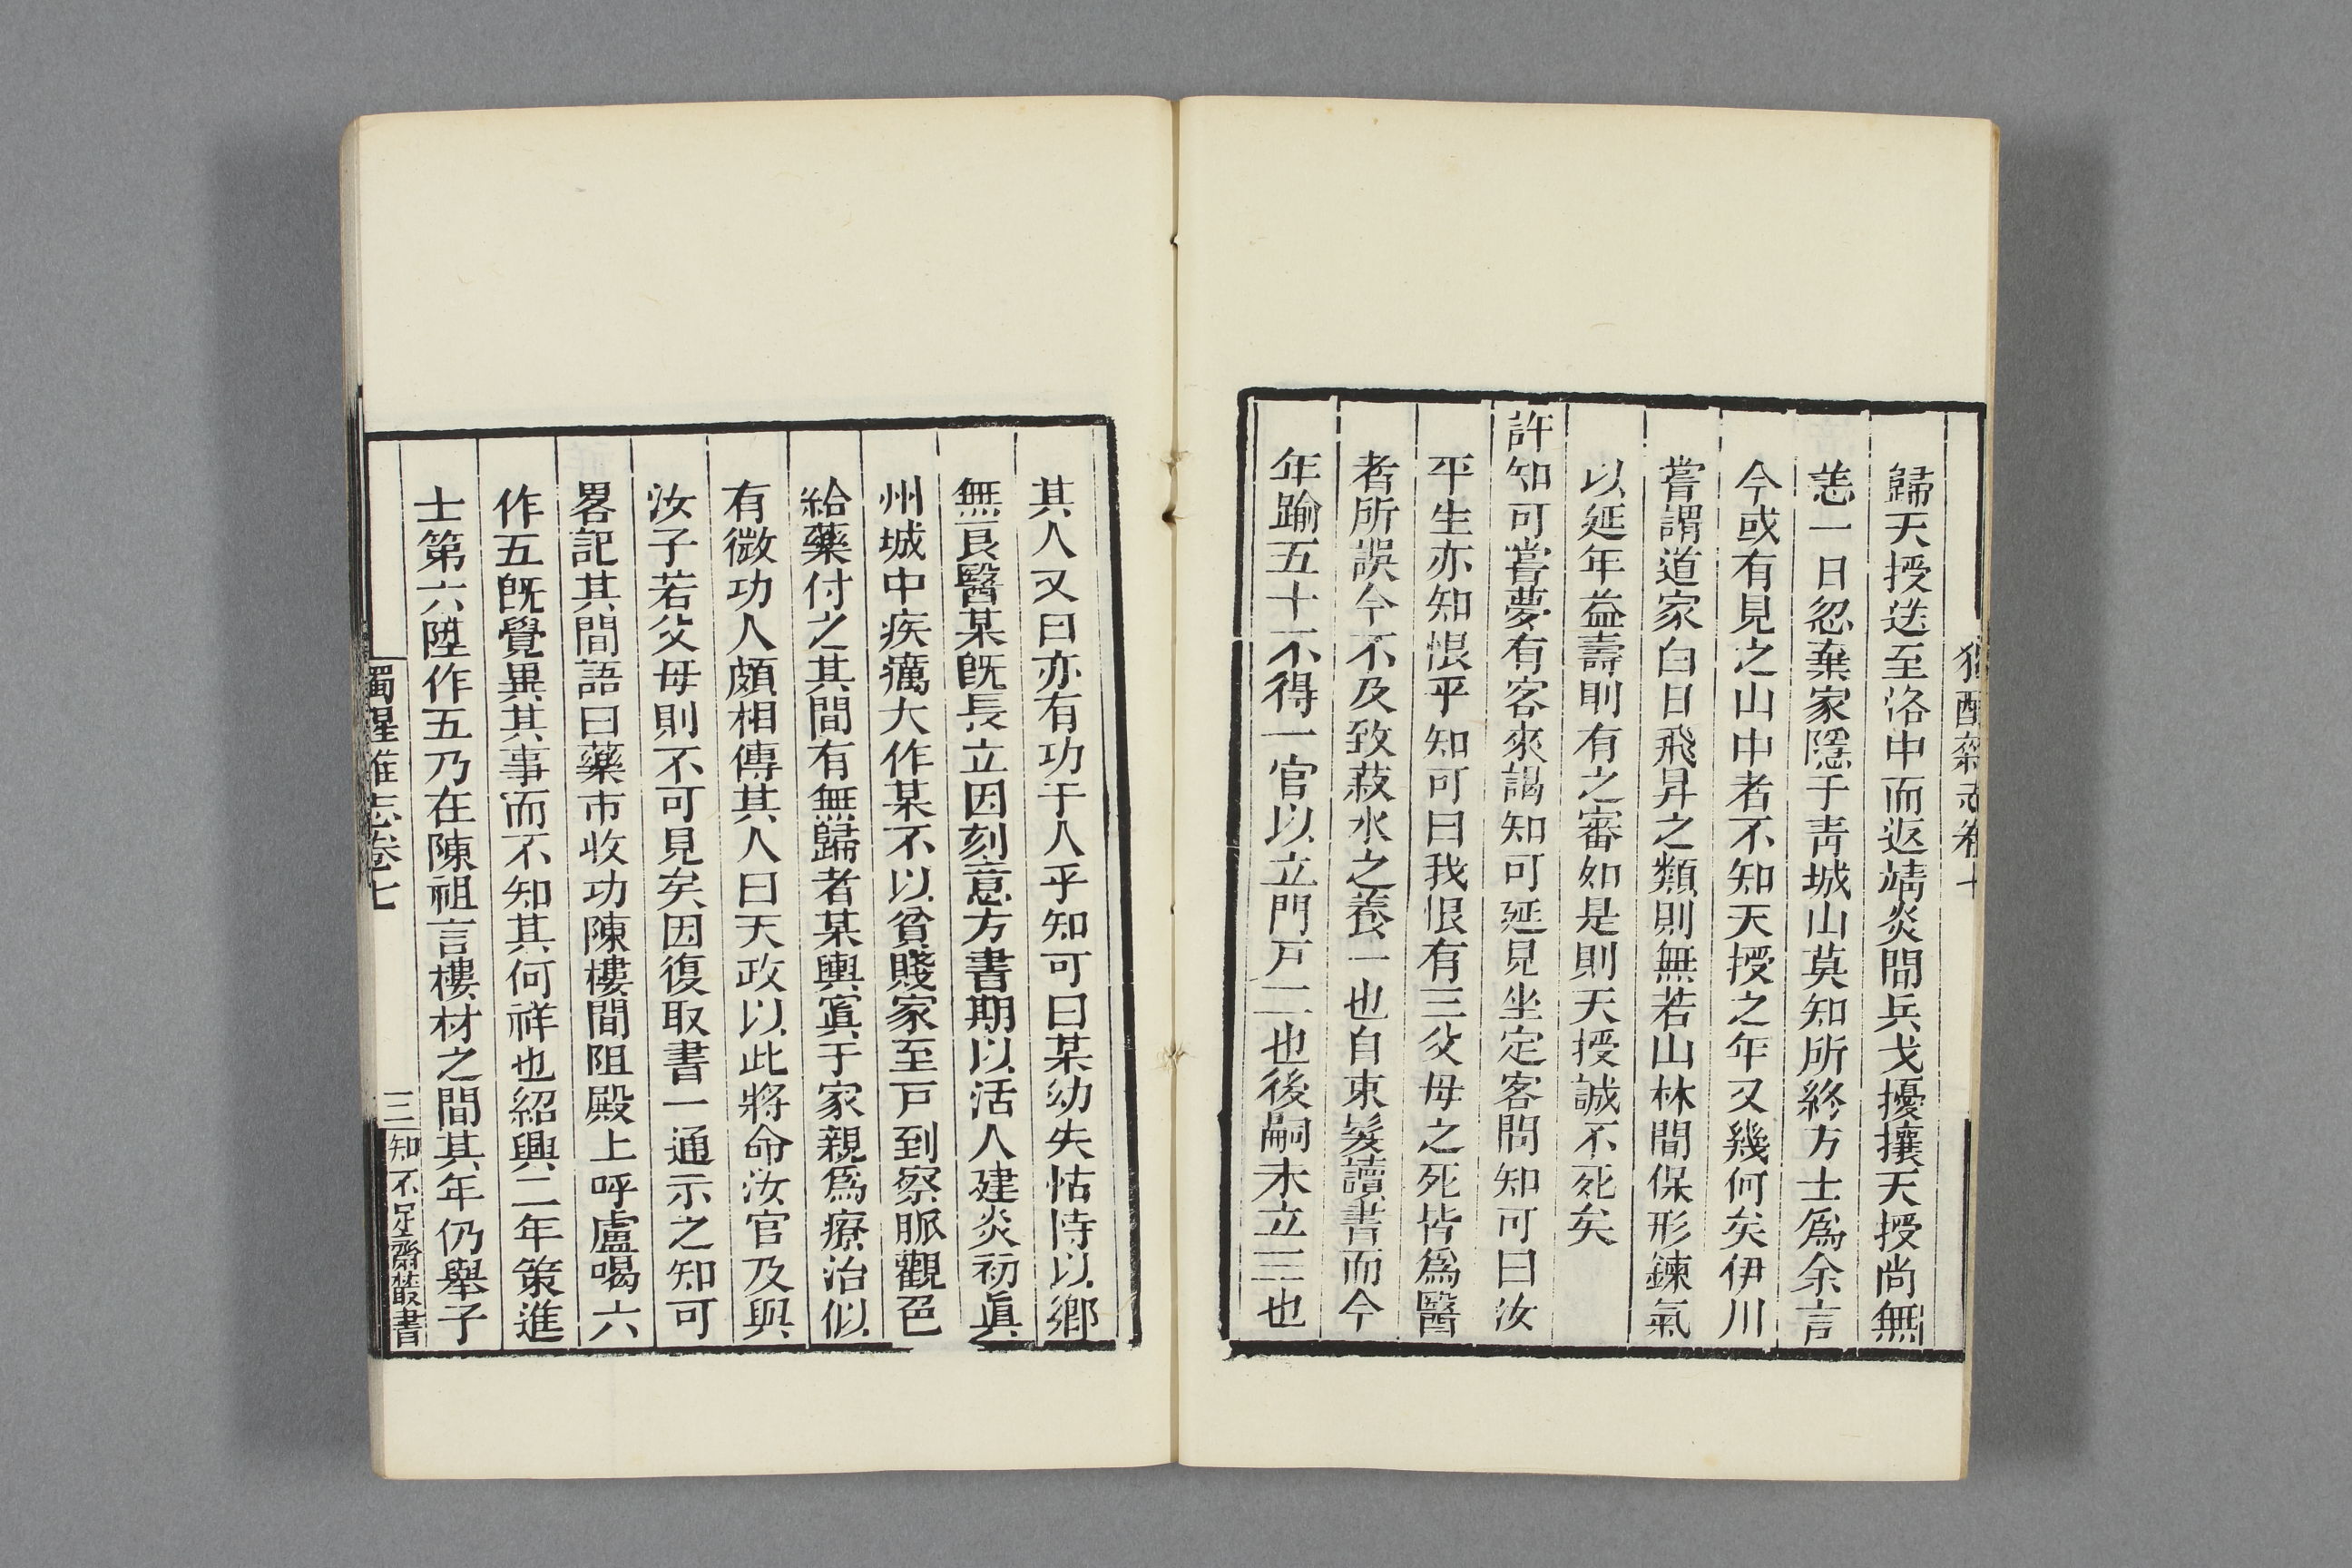 歸天授送至洛中而返靖炎間兵戈擾攘天授尚無
恙一日忽棄家隱于青城山莫知所終方士爲余言
今或有見之山中者不知天授之年又幾何矣伊川
嘗謂道家白日飛昇之類則無若山林間保形鍊氣
以延年益壽則有之審如是則天授誠不死矣
許知可嘗夢有客來謁知可延見坐定客問知可曰汝
平生亦知恨乎知可曰我恨有三父母之死皆爲醫
者所誤今不及致菽水之養一也自束髮讀書而今
年踰五十不得一官以立門戸二也後嗣未立三也
其人又曰亦有功于人乎知可曰某幼失怙恃以鄉
無良醫某既長立因刻意方書期以活人建炎初眞
州城中疾癘大作某不以貧賤家至戸到察脈觀色
給藥付之其間有無歸者某輿寘于家親爲療治似
有微功人頗相傳其人曰天政以此將命汝官及與
汝子若父母則不可見矣因復取書一通示之知可
畧記其間語曰藥市收功陳樓間阻殿上呼盧喝六
作五既覺異其事而不知其何祥也紹興二年策進
士第六陞作五乃在陳祖言樓材之間其年仍舉子
獨醒雜志卷七
三
知不足齋叢書